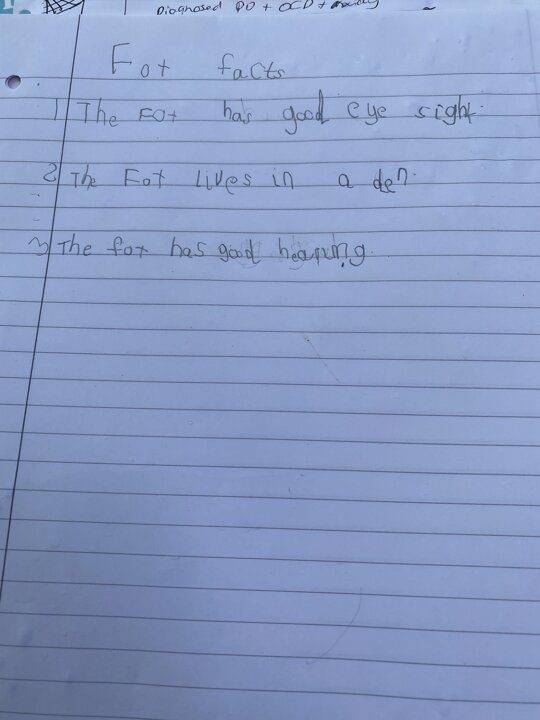 Diagnosed PD + OCD + anxiety
Fox facts
1 The Fox has good eye sight.
2 The Fox lives in a den.
3 The fox has good hearing.